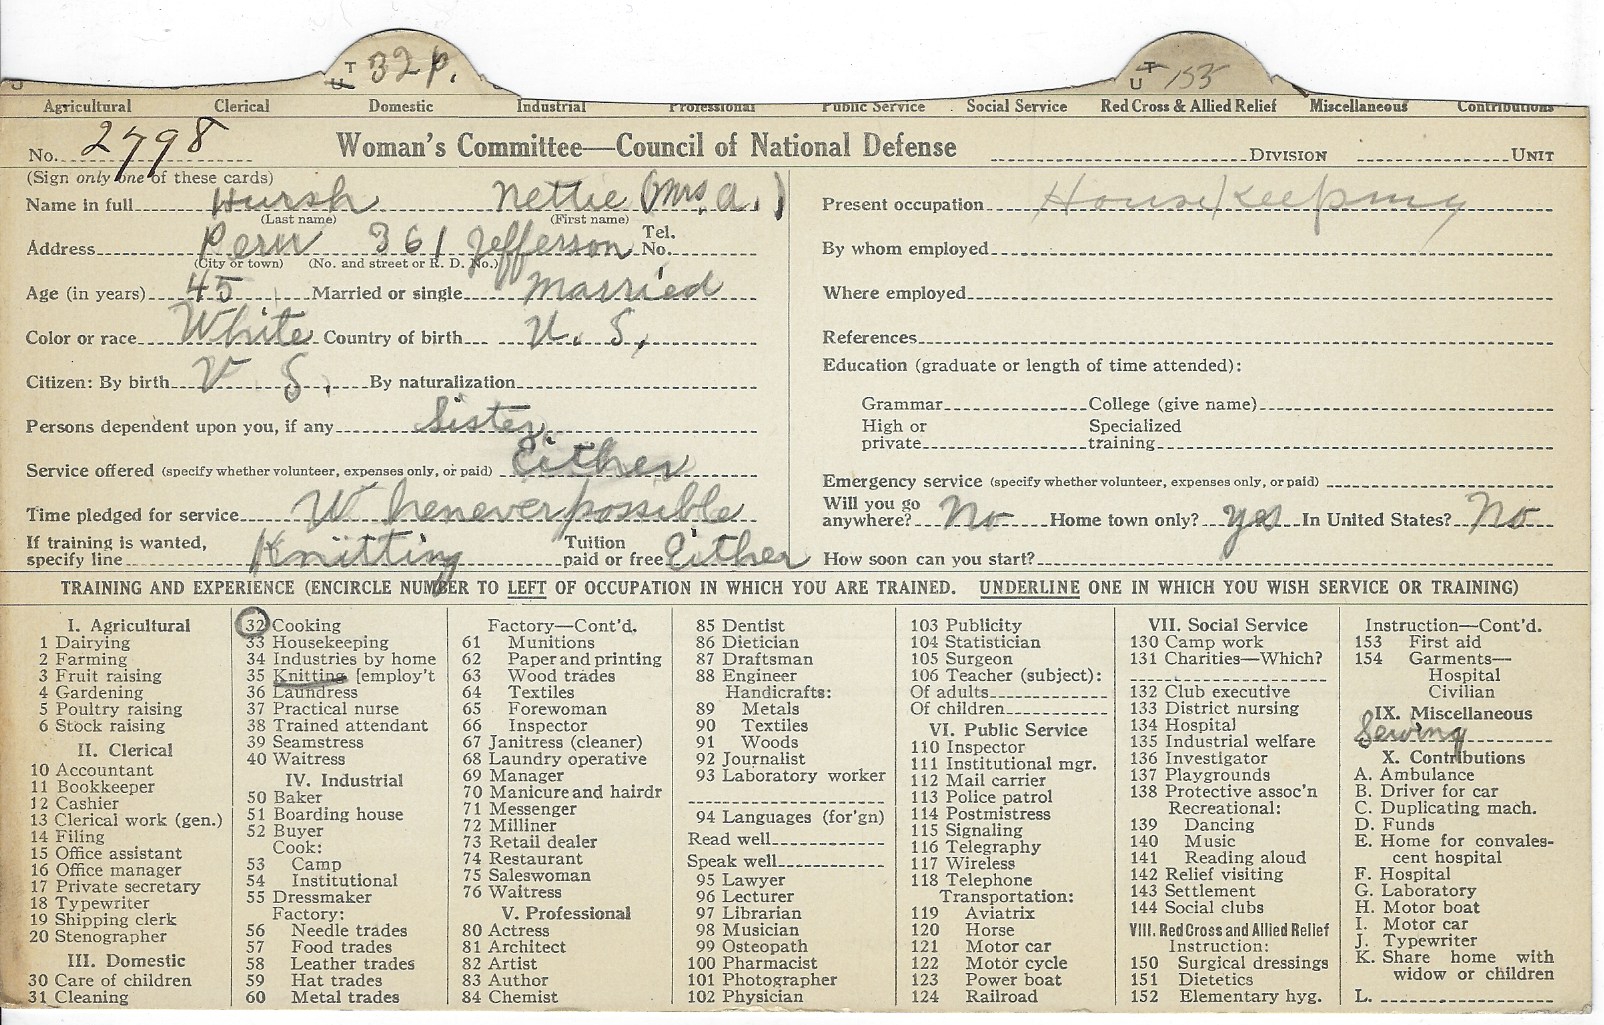 T U 32 p.
T U 153
Agricultural Clerical Domestic Industrial Professional Public Service Social Service Red Cross & Allied Relief Miscellaneous Contributions
No. 2798 Woman's Committee—Council of National Defense DIVISION UNIT
(Sign only one of these cards)
Name in full Hursh Nettie (Mrs. A.)
(Last name) (First name)
Address Peru 361 Jefferson Tel. No.
(City or town) (No. and street or R. D. No.)
Age (in years) 45 Married or single Married
Color or race White Country of birth U. S.
Citizen: By birth U S. By naturalization
Persons dependent upon you, if any Sister
Service offered (specify whether volunteer, expenses only, or paid) Either
Time pledged for service Whenever possible
If training is wanted, specify line Knitting Tuition paid or free Either
Present occupation Housekeeping
By whom employed
Where employed
References
Education (graduate or length of time attended):
Grammar College (give name)
High or private Specialized training
Emergency service (specify whether volunteer, expenses only, or paid)
Will you go anywhere? No Home town only? yes In United States? No
How soon can you start?
TRAINING AND EXPERIENCE (ENCIRCLE NUMBER TO LEFT OF OCCUPATION IN WHICH YOU ARE TRAINED. UNDERLINE ONE IN WHICH YOU WISH SERVICE OR TRAINING)
I. Agricultural
1 Dairying
2 Farming
3 Fruit raising
4 Gardening
5 Poultry raising
6 Stock raising
II. Clerical
10 Accountant
11 Bookkeeper
12 Cashier
13 Clerical work (gen.)
14 Filing
15 Office assistant
16 Office manager
17 Private secretary
18 Typewriter
19 Shipping clerk
20 Stenographer
III. Domestic
30 Care of children
31 Cleaning
32 Cooking
33 Housekeeping
34 Industries by home
35 Knitting [employ't
36 Laundress
37 Practical nurse
38 Trained attendant
39 Seamstress
40 Waitress
IV. Industrial
50 Baker
51 Boarding house
52 Buyer
Cook:
53 Camp
54 Institutional
55 Dressmaker
Factory:
56 Needle trades
57 Food trades
58 Leather trades
59 Hat trades
60 Metal trades
Factory—Cont'd.
61 Munitions
62 Paper and printing
63 Wood trades
64 Textiles
65 Forewoman
66 Inspector
67 Janitress (cleaner)
68 Laundry operative
69 Manager
70 Manicure and hairdr
71 Messenger
72 Milliner
73 Retail dealer
74 Restaurant
75 Saleswoman
76 Waitress
V. Professional
80 Actress
81 Architect
82 Artist
83 Author
84 Chemist
85 Dentist
86 Dietician
87 Draftsman
88 Engineer
Handicrafts:
89 Metals
90 Textiles
91 Woods
92 Journalist
93 Laboratory worker
94 Languages (for'gn)
Read well
Speak well
95 Lawyer
96 Lecturer
97 Librarian
98 Musician
99 Osteopath
100 Pharmacist
101 Photographer
102 Physician
103 Publicity
104 Statistician
105 Surgeon
106 Teacher (subject):
Of adults
Of children
VI. Public Service
110 Inspector
111 Institutional mgr.
112 Mail carrier
113 Police patrol
114 Postmistress
115 Signaling
116 Telegraphy
117 Wireless
118 Telephone
Transportation:
119 Aviatrix
120 Horse
121 Motor car
122 Motor cycle
123 Power boat
124 Railroad
VII. Social Service
130 Camp work
131 Charities—Which?
132 Club executive
133 District nursing
134 Hospital
135 Industrial welfare
136 Investigator
137 Playgrounds
138 Protective assoc'n
Recreational:
139 Dancing
140 Music
141 Reading aloud
142 Relief visiting
143 Settlement
144 Social clubs
VIII. Red Cross and Allied Relief
Instruction:
150 Surgical dressings
151 Dietetics
152 Elementary hyg.
Instruction—Cont'd.
153 First aid
154 Garments—
Hospital
Civilian
IX. Miscellaneous
Sewing
X. Contributions
A. Ambulance
B. Driver for car
C. Duplicating mach.
D. Funds
E. Home for convales-
cent hospital
F. Hospital
G. Laboratory
H. Motor boat
I. Motor car
J. Typewriter
K. Share home with
widow or children
L.